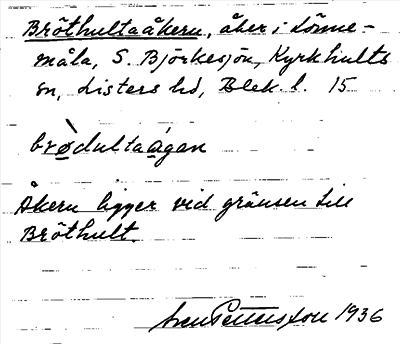 Bröthultaåkern, åker i Lönne-
måla, S. Björkesjön, Kyrkhults
sn, Listers hd, Blek. l. 15
brødultaågan
Åkern ligger vid gränsen till
Bröthult.
Sven Pettersson 1936